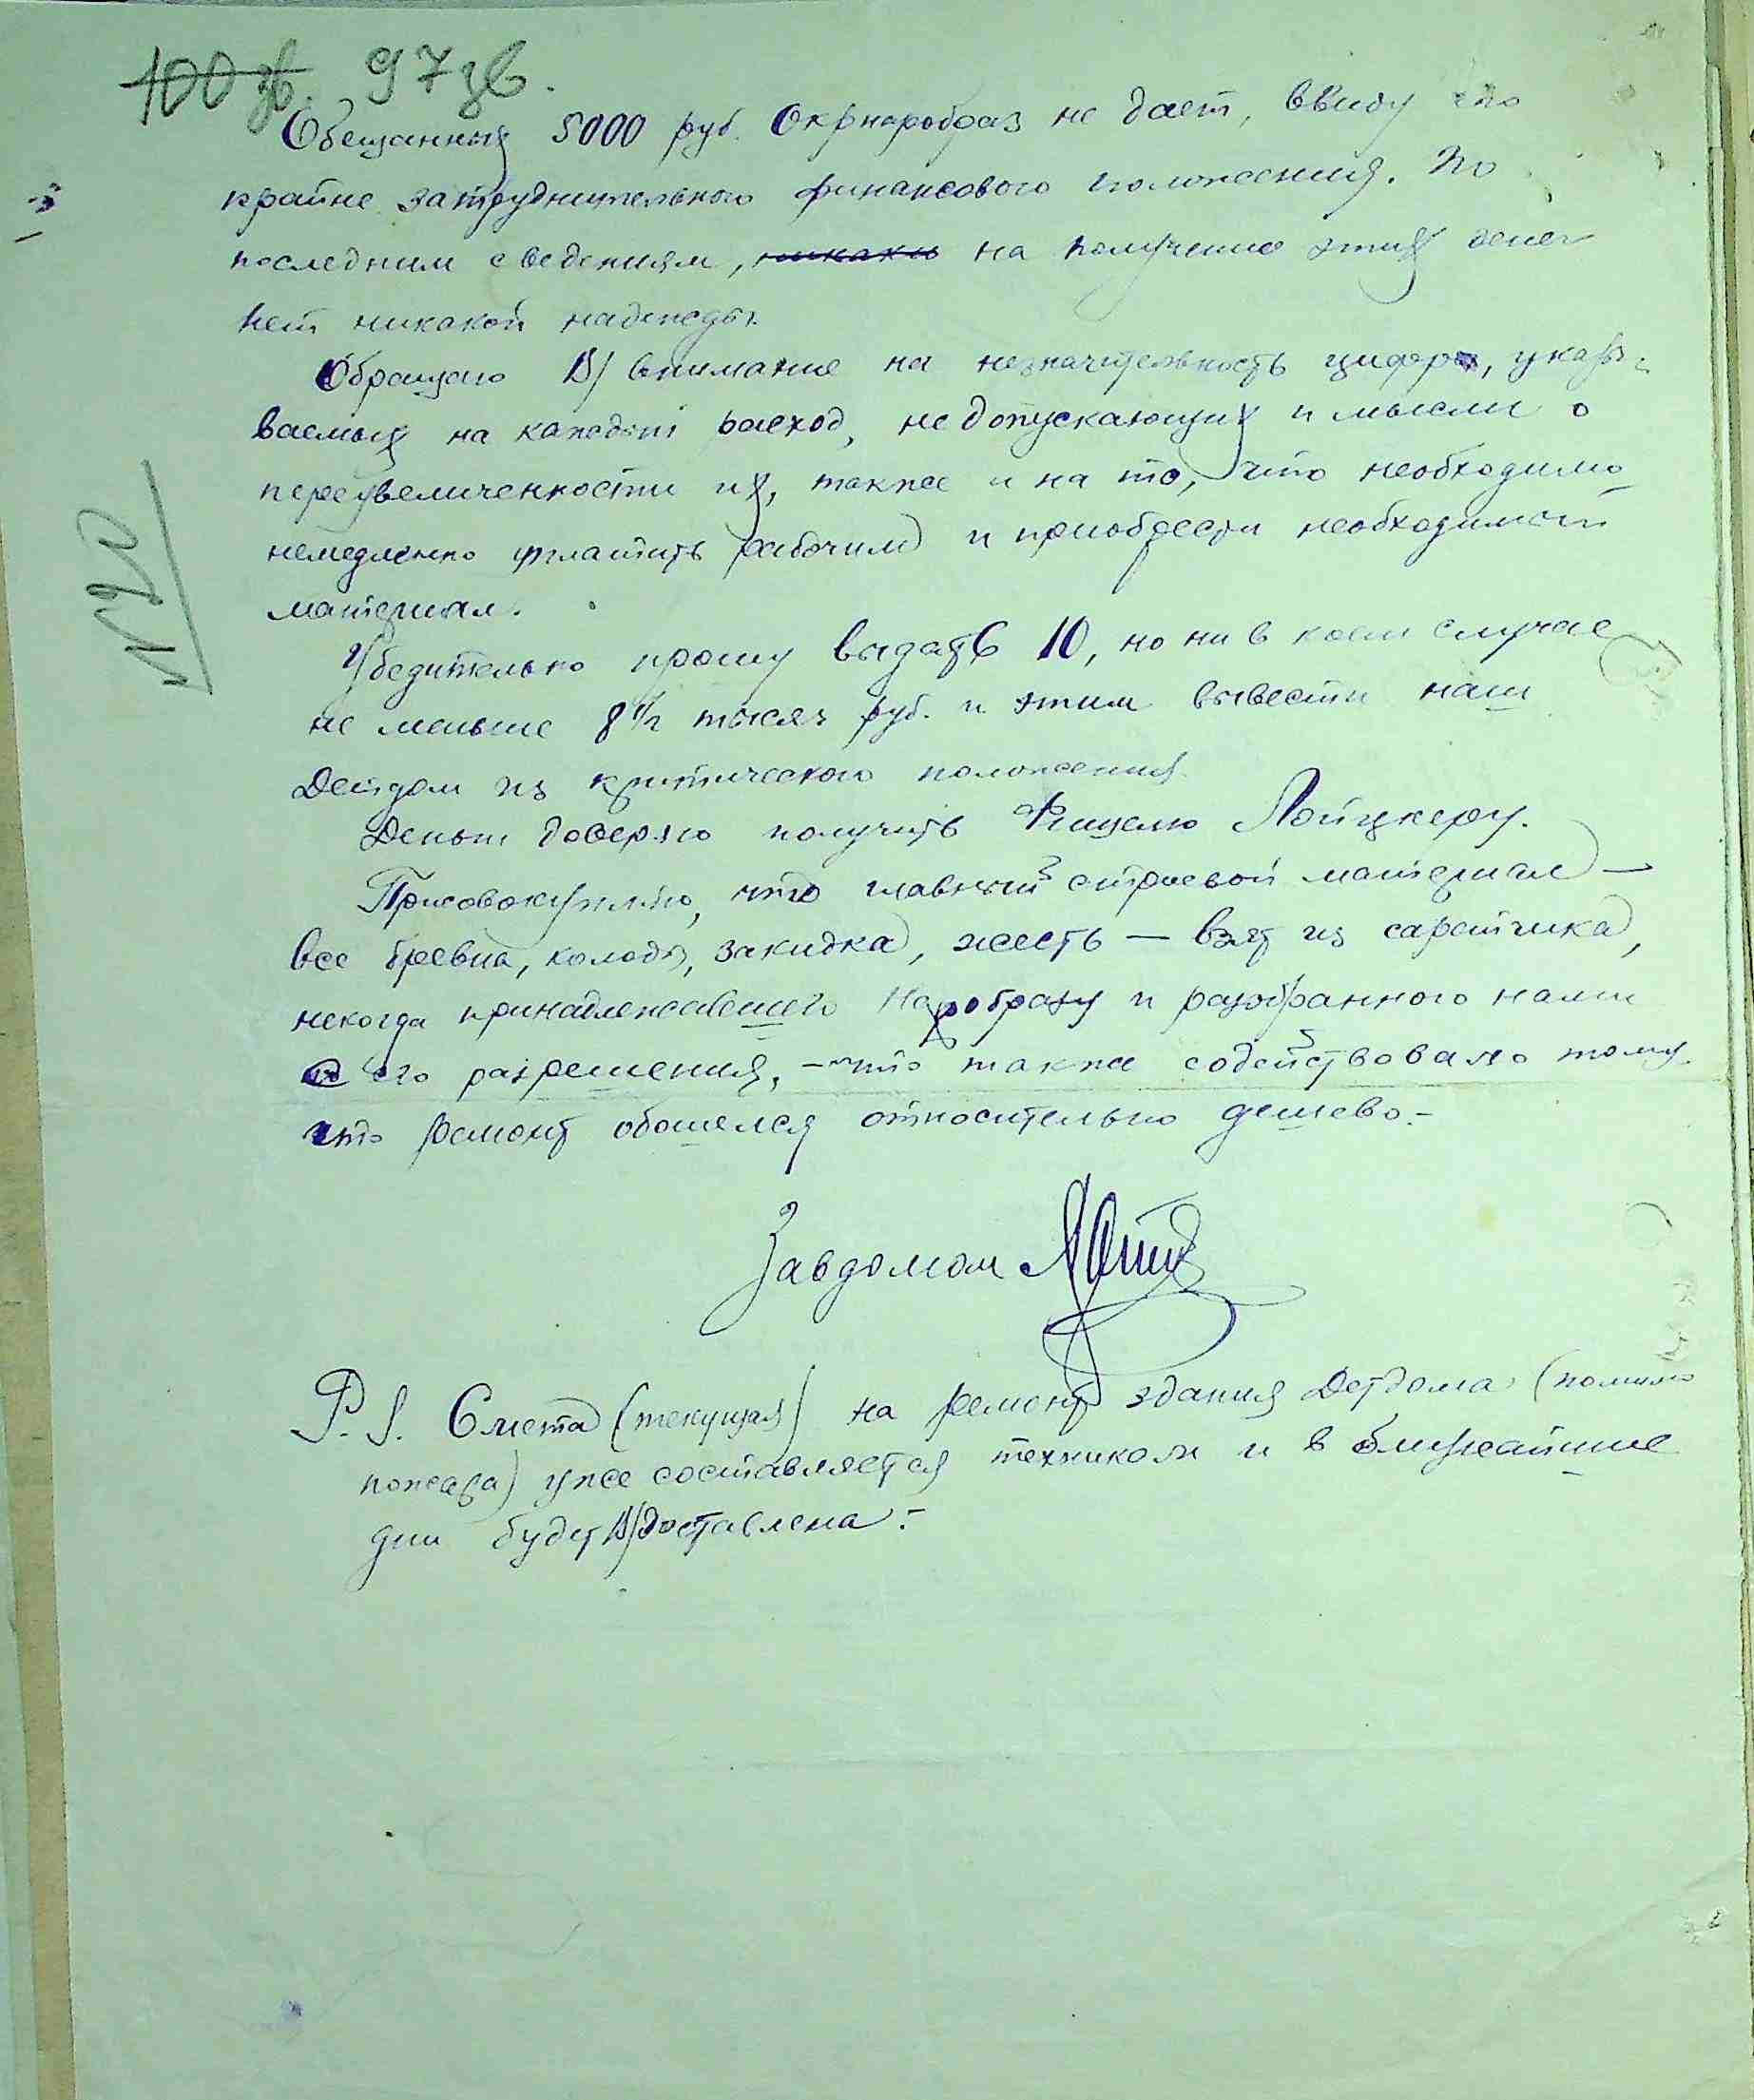 100 зв. 97 зв.
Обещанных 5000 руб. Окрнаробраз не дает, ввиду его
крайне затруднительного финансового положения. По
последним сведениям, никаки на получение этих денег
нет никакой надежды.
Обращаю В/ внимание на незначительность цифр, указы-
ваемых на каждый расход, не допускающих и мысли о
переувеличенности их, также и на то, что необходимо
немедленно уплатить рабочим и приобрести необходимый
материал.
Убедительно прошу выдать 10, но ни в коем случае
не меньше 8 1/2 тысяч руб. и этим вывести наш
Детдом из критического положения.
Деньги доверяю получить Фишелю Лойцкеру.
Присовокупляю, что главный строевой материал —
все бревна, колоды, закидка, жесть — взят из сарайчика,
некогда принадлежавшего Наробразу и разобранного нами
с его разрешения, – что также содействовало тому,
что ремонт обошелся относительно дешево.–
Завдомом
P.S. Смета (текущая) на ремонт здания Детдома (помимо
пожара) уже составляется техником и в ближайшие
дни будет В/ доставлена.–
№20